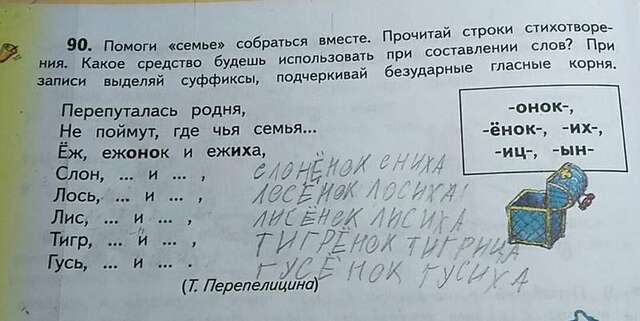 90. Помоги «семье» собраться вместе. Прочитай строки стихотворе-
ния. Какое средство будешь использовать при составлении слов? При
записи выделяй суффиксы, подчеркивай безударные гласные корня.
Перепуталась родня,
Не поймут, где чья семья...
Ёж, ежонок и ежиха,
Слон, ... и ... , СЛОНЁНОК СНИХА
Лось, ... и ... , ЛОСЁНОК ЛОСИХА!
Лис, ... и ... , ЛИСЁНОК ЛИСИХА
Тигр, ... и ... , ТИГРЁНОК ТИГРИЦА
Гусь, ... и ... . ГУСЁНОК ГУСИХА
(Т. Перепелицина)
-онок-,
-ёнок-, -их-,
-иц-, -ын-